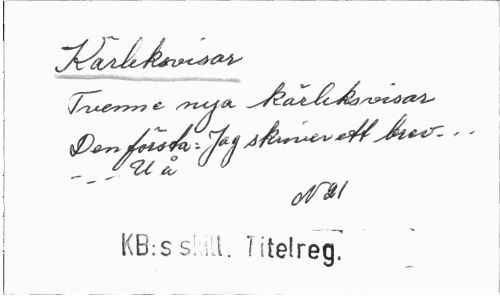 Kärleksvisar
Tvenne nya kärleksvisar
Den första: Jag skriver ett brev...
--- U å
N 21
KB:s skill. Titelreg.